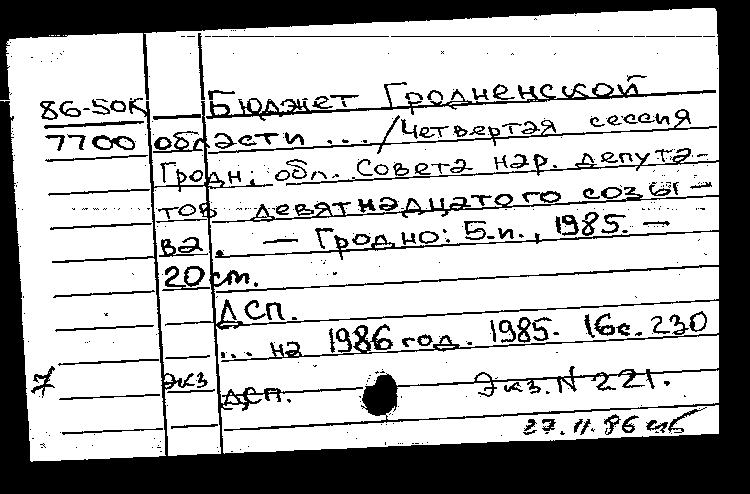 86-50К Бюджет Гродненской
7700 области ... /Четвертая сессия
Гродн. обл. Совета нар. депута-
тов девятнадцатого созы-
ва. — Гродно: Б.и., 1985. —
20 см.
ДСП.
... на 1986 год. 1985. 16с. 230
7 экз ДСП. Экз. N 221.
27.11.86